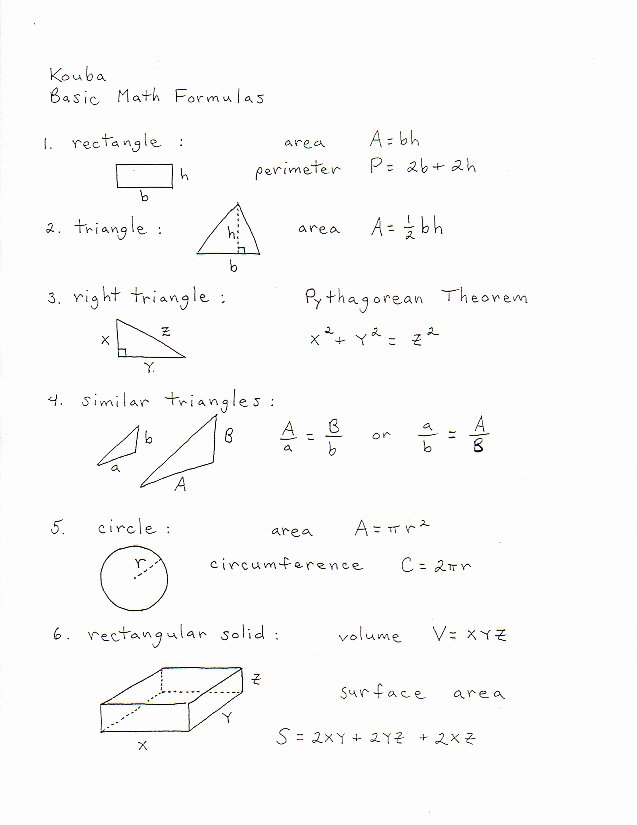 Kouba
Basic Math Formulas
1. rectangle : area A = bh
h perimeter P = 2b + 2h
b
2. triangle : h area A = ½ bh
b
3. right triangle : Pythagorean Theorem
X Z X² + Y² = Z²
Y
4. similar triangles :
b B A/a = B/b or a/b = A/B
a
A
5. circle : area A = πr²
r circumference C = 2πr
6. rectangular solid : volume V = XYZ
Z
surface area
Y
X S = 2XY + 2YZ + 2XZ